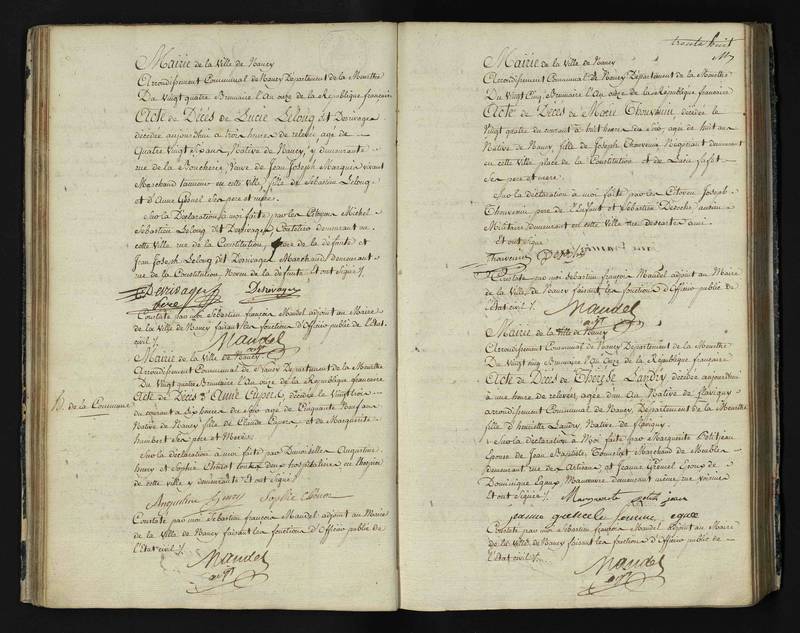 Mairie de la Ville de Nancy
Arrondissement Communal de Nancy Département de la Meurthe
Du Vingt quatre Brumaire l'An onze de la République française
Acte de Décès de Lucie Lelong dit Desrivages
décédée aujourd'hui à trois heures de relevée, agée de
quatre Vingt Six ans, Native de Nancy, y demeurante
rue de la Boucherie, Veuve de Jean Joseph Marquis vivant
Marchand tanneur en cette Ville, fille de Sébastien Lelong
et d'Anne ses père et mère.
Sur la Déclaration à moi faite par les Citoyens Michel
Sébastien Lelong dit Desrivages, Coutelier demeurant en
cette ville rue de la Constitution, de la défunte et
Jean Joseph Lelong dit Desrivages Marchand demeurant
rue de la Constitution, Neveu de la défunte Et ont Signé /.
Desrivages Desrivages
père
Constaté par moi Sébastien françois Mandel adjoint au Maire
de la Ville de Nancy faisant les fonctions d'Officier public de l'Etat
civil /.
Mandel
adjt
Mairie de la Ville de Nancy.
Arrondissement Communal de Nancy Département de la Meurthe
Du Vingt quatre Brumaire l'An onze de la République française
h. de la Commune
Acte de Décès d'Anne Cupers, décédée le Vingt trois
du courant à Six heures du Soir agée de Cinquante Neuf ans
Native de Nancy fille de Claude Cupers et de Marguerite
humbert Ses père et Mère.
Sur la déclaration à moi faite par Demoiselles Augustine
henry et Sophie toutes deux hospitalières en l'hospice
de cette ville y demeurante Et ont Signé
Augustine Sophie
Constaté par moi Sébastien françois Mandel adjoint au Maire
de la Ville de Nancy faisant les fonctions d'Officier public de
l'Etat civil /.
Mandel
adjt
trente huit
Mairie de la Ville de Nancy
Arrondissement Communal de Nancy Département de la Meurthe
Du Vingt Cinq Brumaire l'An onze de la République française
Acte de Décès de Marie Thouvenin, décédée le
Vingt quatre du courant à huit heures du Soir, agée de huit ans
Native de Nancy, fille de Joseph Thouvenin Négociant demeurant
en cette ville place de la Constitution et de Lucie
Ses père et mère.
Sur la déclaration à moi faite par les Citoyens Joseph
Thouvenin père de l'Enfant et Sébastien ancien
Militaire demeurant en cette Ville rue Descartes ami.
Et ont Signé
Thouvenin
Constaté par moi Sébastien françois Mandel adjoint au Maire
de la Ville de Nancy faisant les fonctions d'Officier public de
l'Etat civil /.
Mandel
adjt
Mairie de la Ville de Nancy
Arrondissement Communal de Nancy Département de la Meurthe
Du Vingt cinq Brumaire l'An Onze de la République française
Acte de Décès de Thérèse Landry décédée aujourd'hui
à une heure de relevée, agée d'un An Native de flavigny
arrondissement Communal de Nancy, Département de la Meurthe
fille d'henriette Landry, Native de flavigny.
Sur la déclaration à Moi faite par Marguerite Petitjean
Epouse de Jean Baptiste Marchand de Meubles
demeurant rue des Artisans, et Jeanne Epouse de
Dominique Manœuvre demeurant même rue Voisines
Et ont Signé /. Marguerite petit jean
jeanne femme
Constaté par moi Sébastien françois Mandel adjoint au Maire
de la Ville de Nancy faisant les fonctions d'Officier public de
l'Etat civil /.
Mandel
adjt